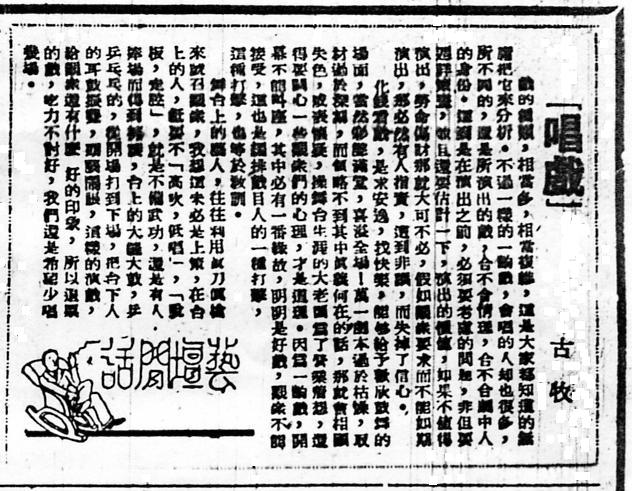 「唱戲」
古牧
戲的種類，相當多，相當複雜，這是大家都知道的無
需把它來分析。不過一樣的一齣戲，會唱的人却也很多，
所不同的，還是所演出的戲，合不合情理，合不合劇中人
的身份。這到是在演出之前，必須要考慮的問題，非但要
週詳策劃，並且還要估計一下，演出的價值，如果不值得
演出，勞命傷財那就大可不必，假如觀衆要求而不能如期
演出，那必然有人指責，遭到非議，而失掉了信心。
化錢看戲，是求安逸，找快樂，能够給予歡欣鼓舞的
場面，當然必能滿堂，喜溢全場！萬一劇本過於枯燥，取
材過於深刻，而領略不到其中真義何在的話，那就會相顧
失色，或表懷疑，操舞台生涯的大老闆爲了營業着想，還
得要關心一些觀衆們的心理，才是道理。因爲一齣戲，開
幕不能叫座，其中必有一番緣故，明明是好戲，觀衆不能
接受，這也是編排戲目人的一種打擊，
這種打擊，也等於教訓。
舞台上的藝人，往往利用真刀真槍
來號召觀衆，我想這未必是上策，在台
上的人，祗要不「高吹，低唱」，「
板，走腔」，就是不備武功，還是有人
捧場而得到好評，台上的大鑼大鼓，乒
乒乓乓的，從開場打到下場，把台下人
的耳鼓振聾，頭腦鬧脹，這樣的演戲，
給觀衆還有什麽 好的印象，所以退票
的戲，吃力不討好，我們還是希望少唱
幾場。
藝壇閒話